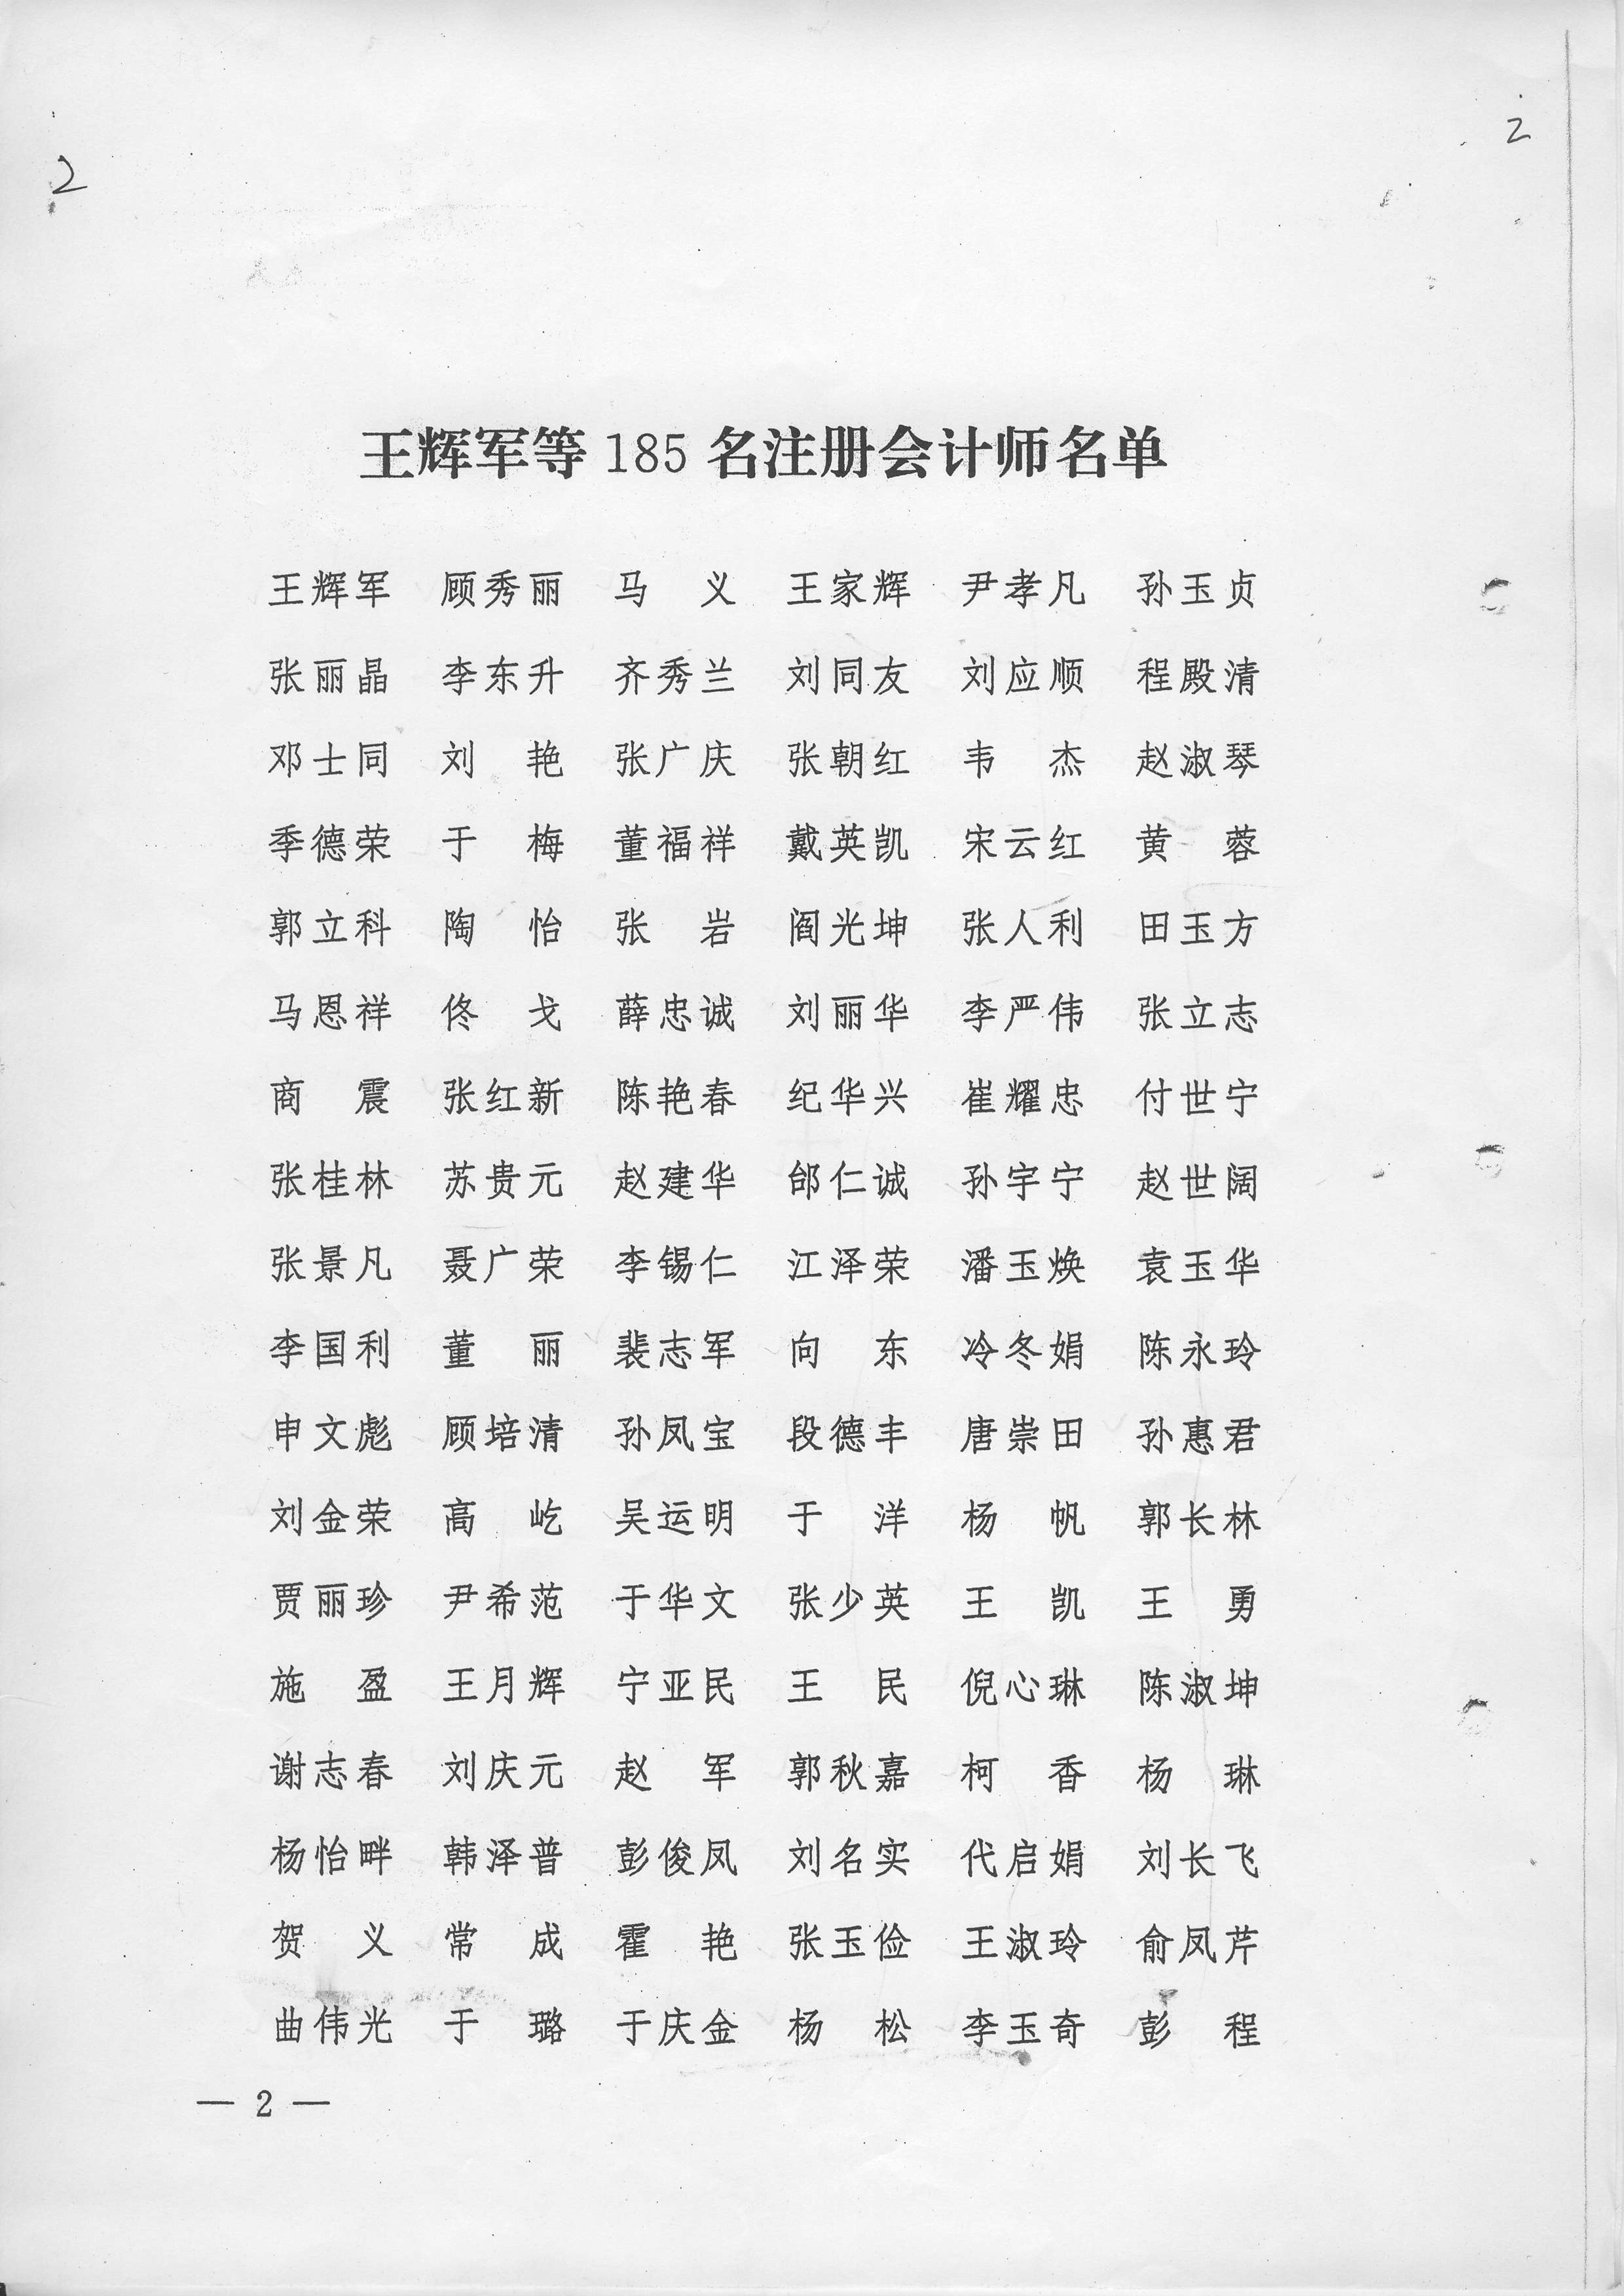 2
2
王辉军等185名注册会计师名单
王辉军 顾秀丽 马 义 王家辉 尹孝凡 孙玉贞
张丽晶 李东升 齐秀兰 刘同友 刘应顺 程殿清
邓士同 刘 艳 张广庆 张朝红 韦 杰 赵淑琴
季德荣 于 梅 董福祥 戴英凯 宋云红 黄 蓉
郭立科 陶 怡 张 岩 阎光坤 张人利 田玉方
马恩祥 佟 戈 薛忠诚 刘丽华 李严伟 张立志
商 震 张红新 陈艳春 纪华兴 崔耀忠 付世宁
张桂林 苏贵元 赵建华 邰仁诚 孙宇宁 赵世阔
张景凡 聂广荣 李锡仁 江泽荣 潘玉焕 袁玉华
李国利 董 丽 裴志军 向 东 冷冬娟 陈永玲
申文彪 顾培清 孙凤宝 段德丰 唐崇田 孙惠君
刘金荣 高 屹 吴运明 于 洋 杨 帆 郭长林
贾丽珍 尹希范 于华文 张少英 王 凯 王 勇
施 盈 王月辉 宁亚民 王 民 倪心琳 陈淑坤
谢志春 刘庆元 赵 军 郭秋嘉 柯 香 杨 琳
杨怡畔 韩泽普 彭俊凤 刘名实 代启娟 刘长飞
贺 义 常 成 霍 艳 张玉俭 王淑玲 俞凤芹
曲伟光 于 璐 于庆金 杨 松 李玉奇 彭 程
— 2 —